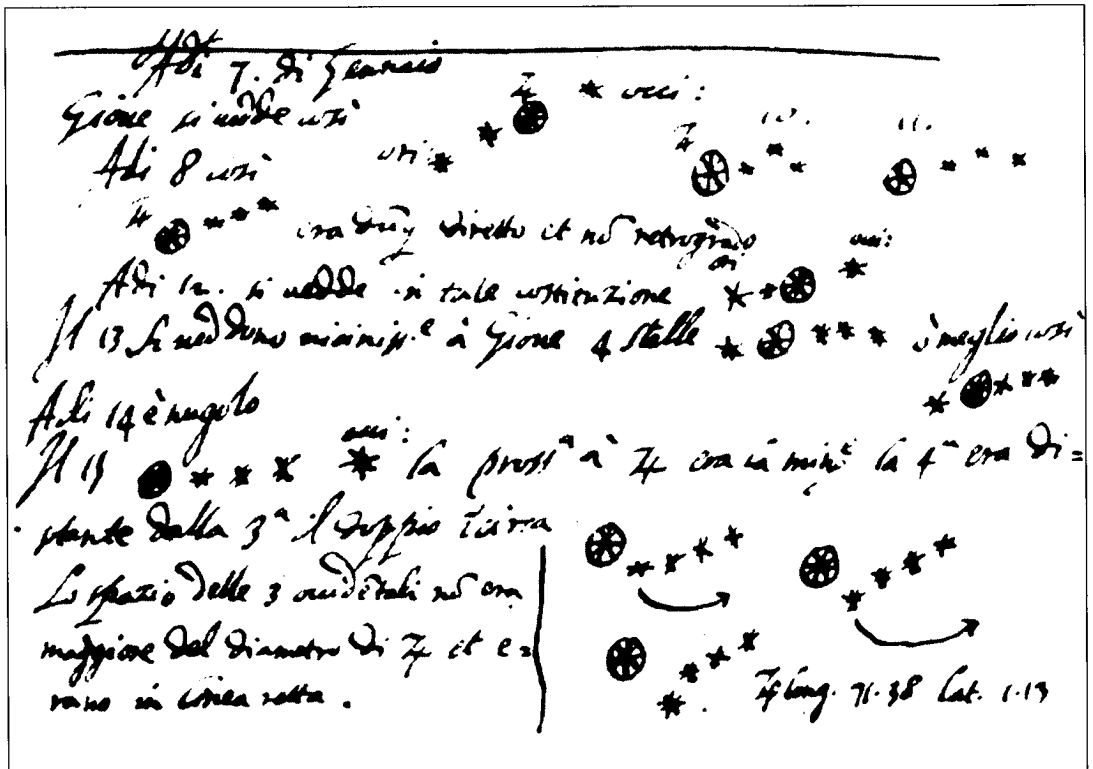 Adi 7. di Gennaio
Gioue si uedde così
♃ occi:
Adi 8 così ori: ♃ 10. 11.
♃ era dūq diretto et nō retrogrado
Adi 12. si uedde in tale costituzione ori occi:
Il 13 si ueddono uicinis.e à Gioue 4 stelle ò meglio così
Adi 14 è nugolo
Il 15 occi: la pross.a à ♃ era la min.e la 4.a era di=
stante dalla 3.a il doppio circa
Lo spazio delle 3 occidētali nō era
maggiore del diametro di ♃ et e=
rano in linea retta.
♃ long. 71.38 lat. 1.13